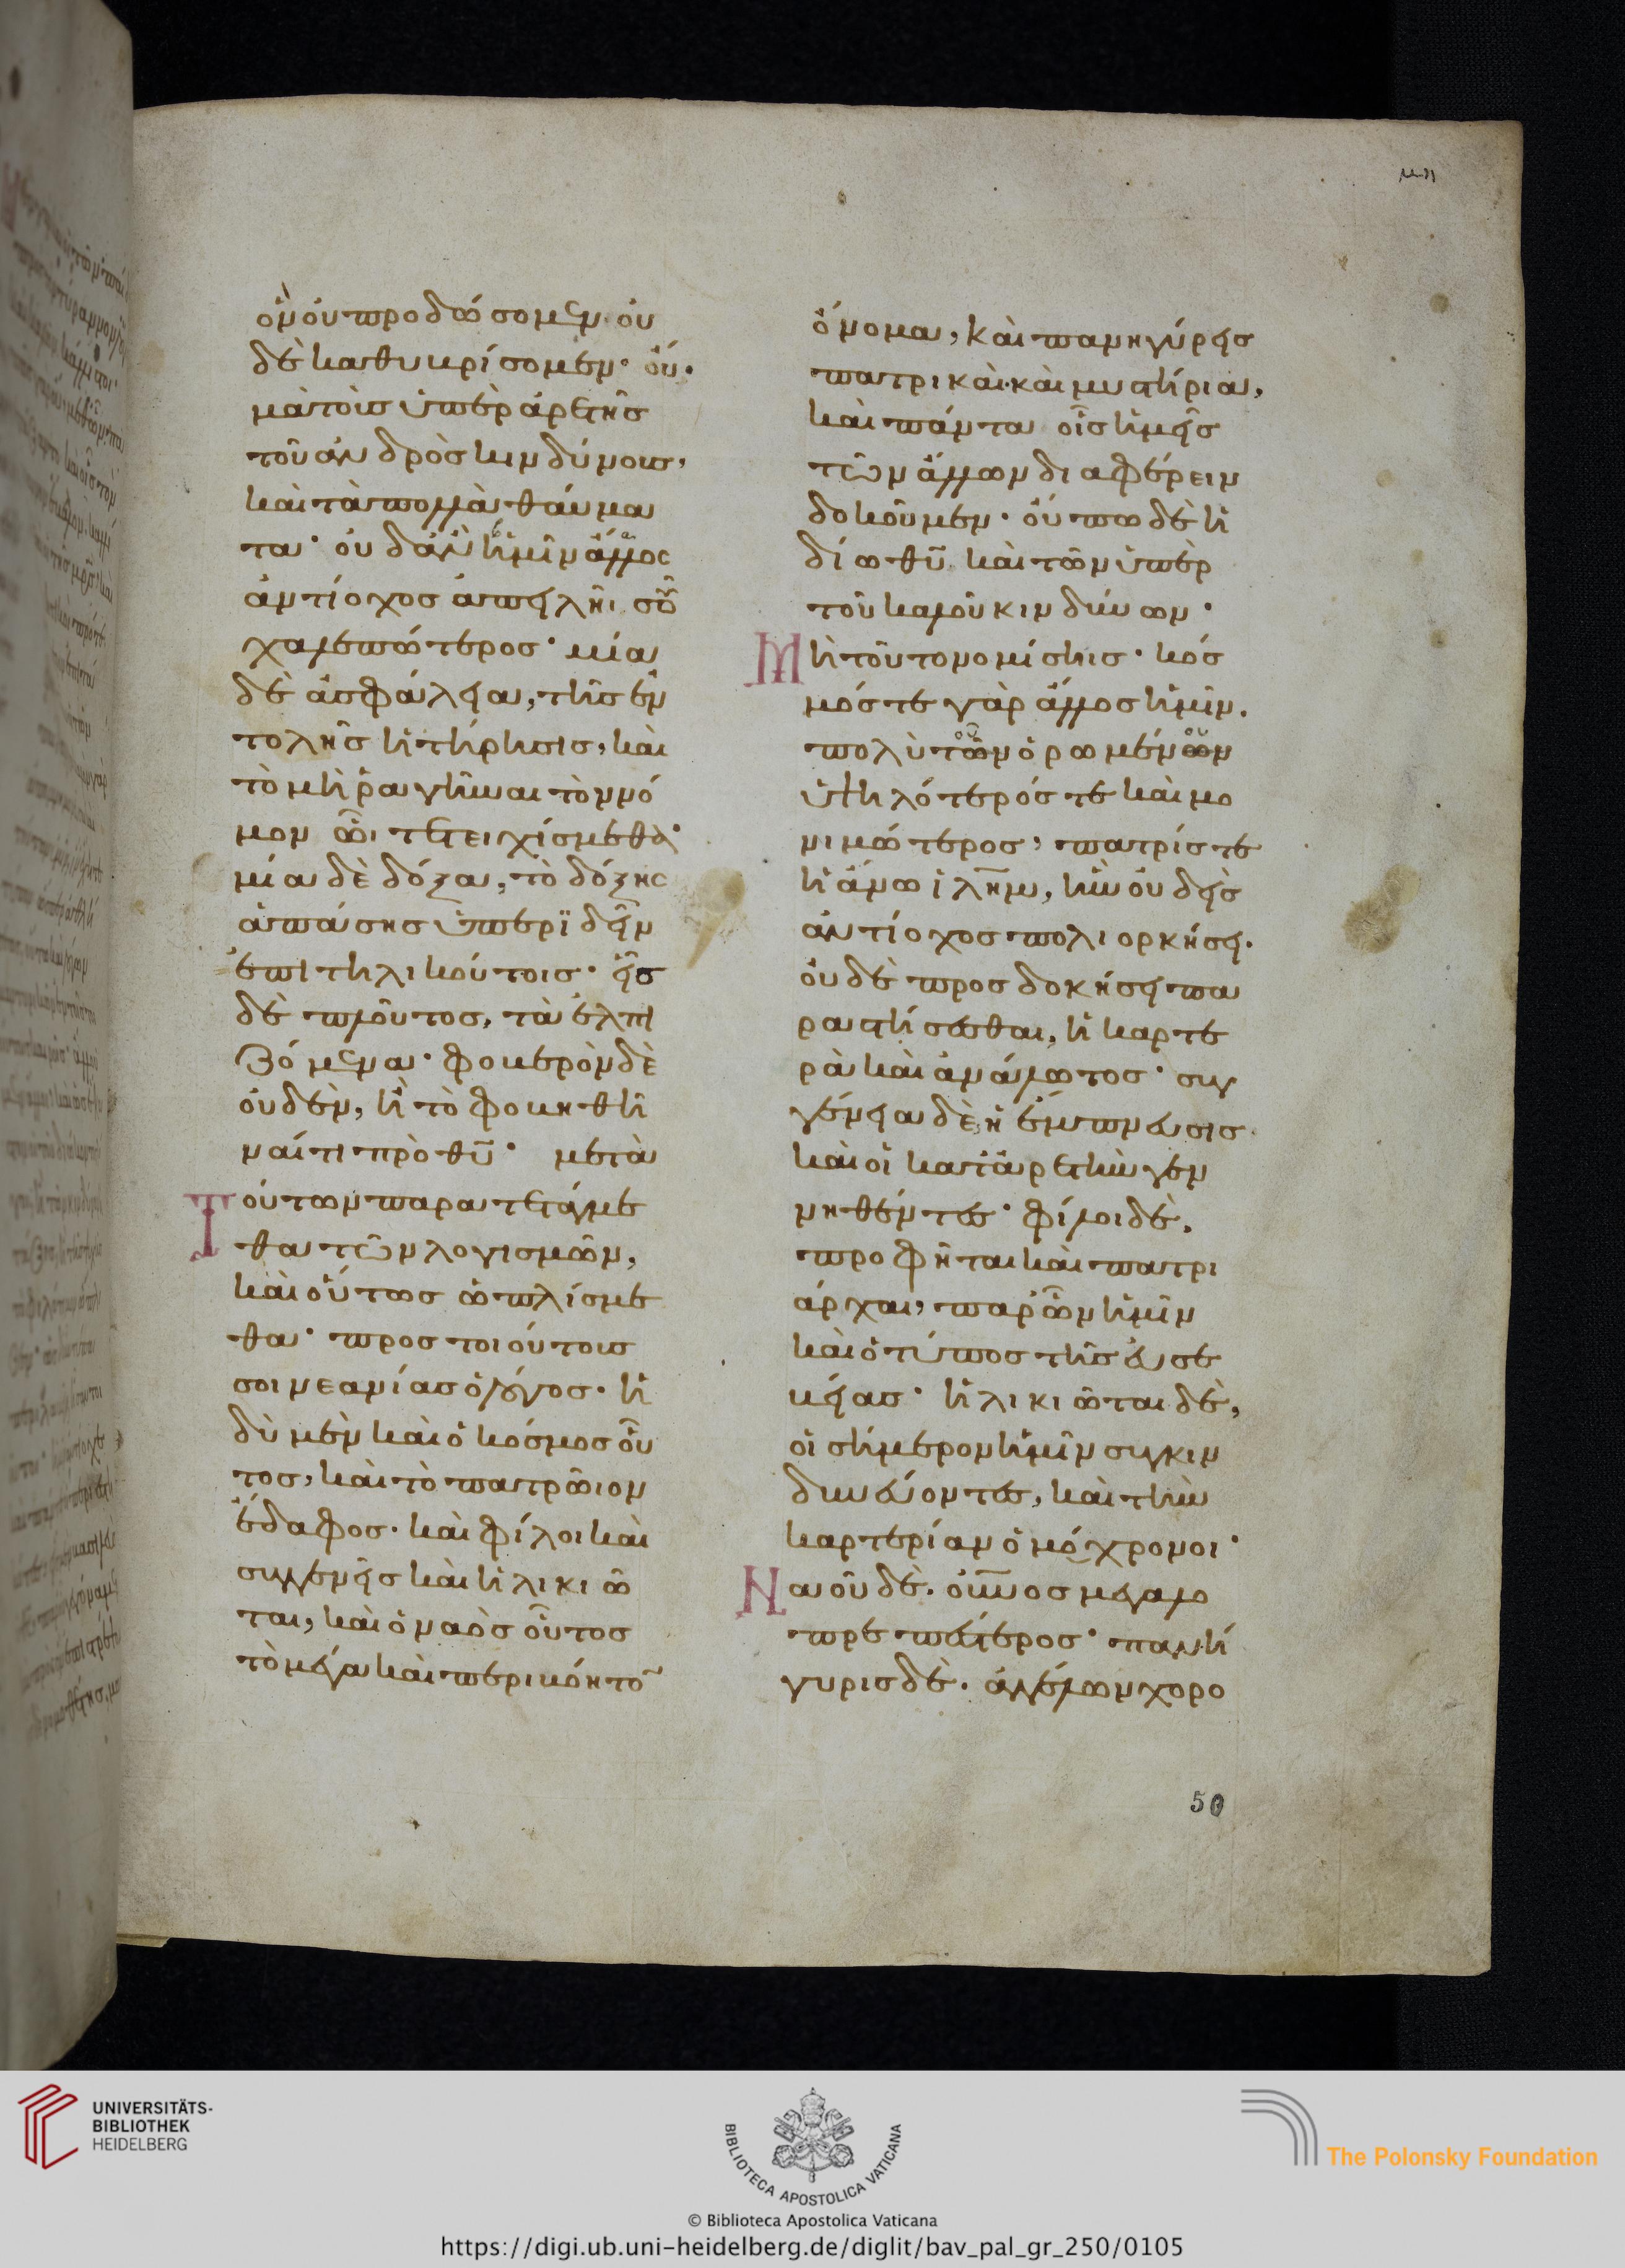 μη
ὃν οὐ προδώσομεν· οὐ
δὲ καθυβρίσομεν· οὐ·
μὰ τοὺς ὑπὲρ ἀρετῆς
τοῦ ἀνδρὸς κινδύνους,
καὶ τὰ πολλὰ θαύμα
τα· οὐδ' ἂν ἡμῖν ἄλλος
ἀντίοχος ἀπειλῆι σοῦ
χαλεπώτερος· μία
δὲ ἀσφάλεια, τῆς ἐν
τολῆς ἡ τήρησις, καὶ
τὸ μὴ ῥαγῆναι τὸν νό
μον ὧι τετειχίσμεθα·
μία δὲ δόξα, τὸ δόξης
ἁπάσης ὑπεριδεῖν
ἐπὶ τηλικούτοις· εἷς
δὲ πλοῦτος, τὰ ἐλπι
ζόμενα· φοβερὸν δὲ
οὐδὲν, ἢ τὸ φοβηθῆ
ναί τι πρὸ θῦ· μετὰ
Τούτων παρατετάγμε
θα τῶν λογισμῶν,
καὶ οὕτως ὡπλίσμε
θα· προς τοιούτους
σοι νεανίας ὁ λόγος· ἡ
δὺ μὲν καὶ ὁ κόσμος οὗ
τος, καὶ τὸ πατρῶιον
ἔδαφος· καὶ φίλοι καὶ
συγγενεῖς καὶ ἡλικιῶ
ται, καὶ ὁ ναὸς οὗτος
τὸ μέγα καὶ περιβόητο
ὄνομα, καὶ πανηγύρεις
πατρικαὶ· καὶ μυστήρια,
καὶ πάντα οἷς ἡμεῖς
τῶν ἄλλων διαφέρειν
δοκοῦμεν· οὔπω δὲ ἡ
δίω θῦ καὶ τῶν ὑπὲρ
τοῦ καλοῦ κινδύνων·
Μὴ τοῦτο νομίσηις· κόσ
μός τε γὰρ ἄλλος ἡμῖν,
πολὺ τῶν ὁρωμένων
ὑψηλότερός τε καὶ μο
νιμώτερος, πατρίς τε
ἡ ἄνω ἰλῆμ, ἣν οὐδεὶς
ἀντίοχος πολιορκήσει·
οὐδὲ προσδοκήσει πα
ραστήσεσθαι, ἡ καρτε
ρὰ καὶ ἀνάλωτος· συγ
γένεια δὲ, ἡ ἔμπνευσις
καὶ οἱ κατ' ἀρετὴν γεν
νηθέντες· φίλοι δὲ,
προφῆται καὶ πατρι
άρχαι, παρ' ὧν ἡμῖν
καὶ ὁ τύπος τῆς εὐσε
βείας· ἡλικιῶται δὲ,
οἱ σήμερον ἡμῖν συγκιν
δυνεύοντες, καὶ τὴν
καρτερίαν ὁμόχρονοι·
Ναοῦ δὲ· οὐνος μεγαλο
πρεπέστερος· πανή
γυρις δὲ· ἀγγέλων χορο
50
UNIVERSITÄTS-
BIBLIOTHEK
HEIDELBERG
BIBLIOTECA APOSTOLICA VATICANA
The Polonsky Foundation
© Biblioteca Apostolica Vaticana
https://digi.ub.uni-heidelberg.de/diglit/bav_pal_gr_250/0105